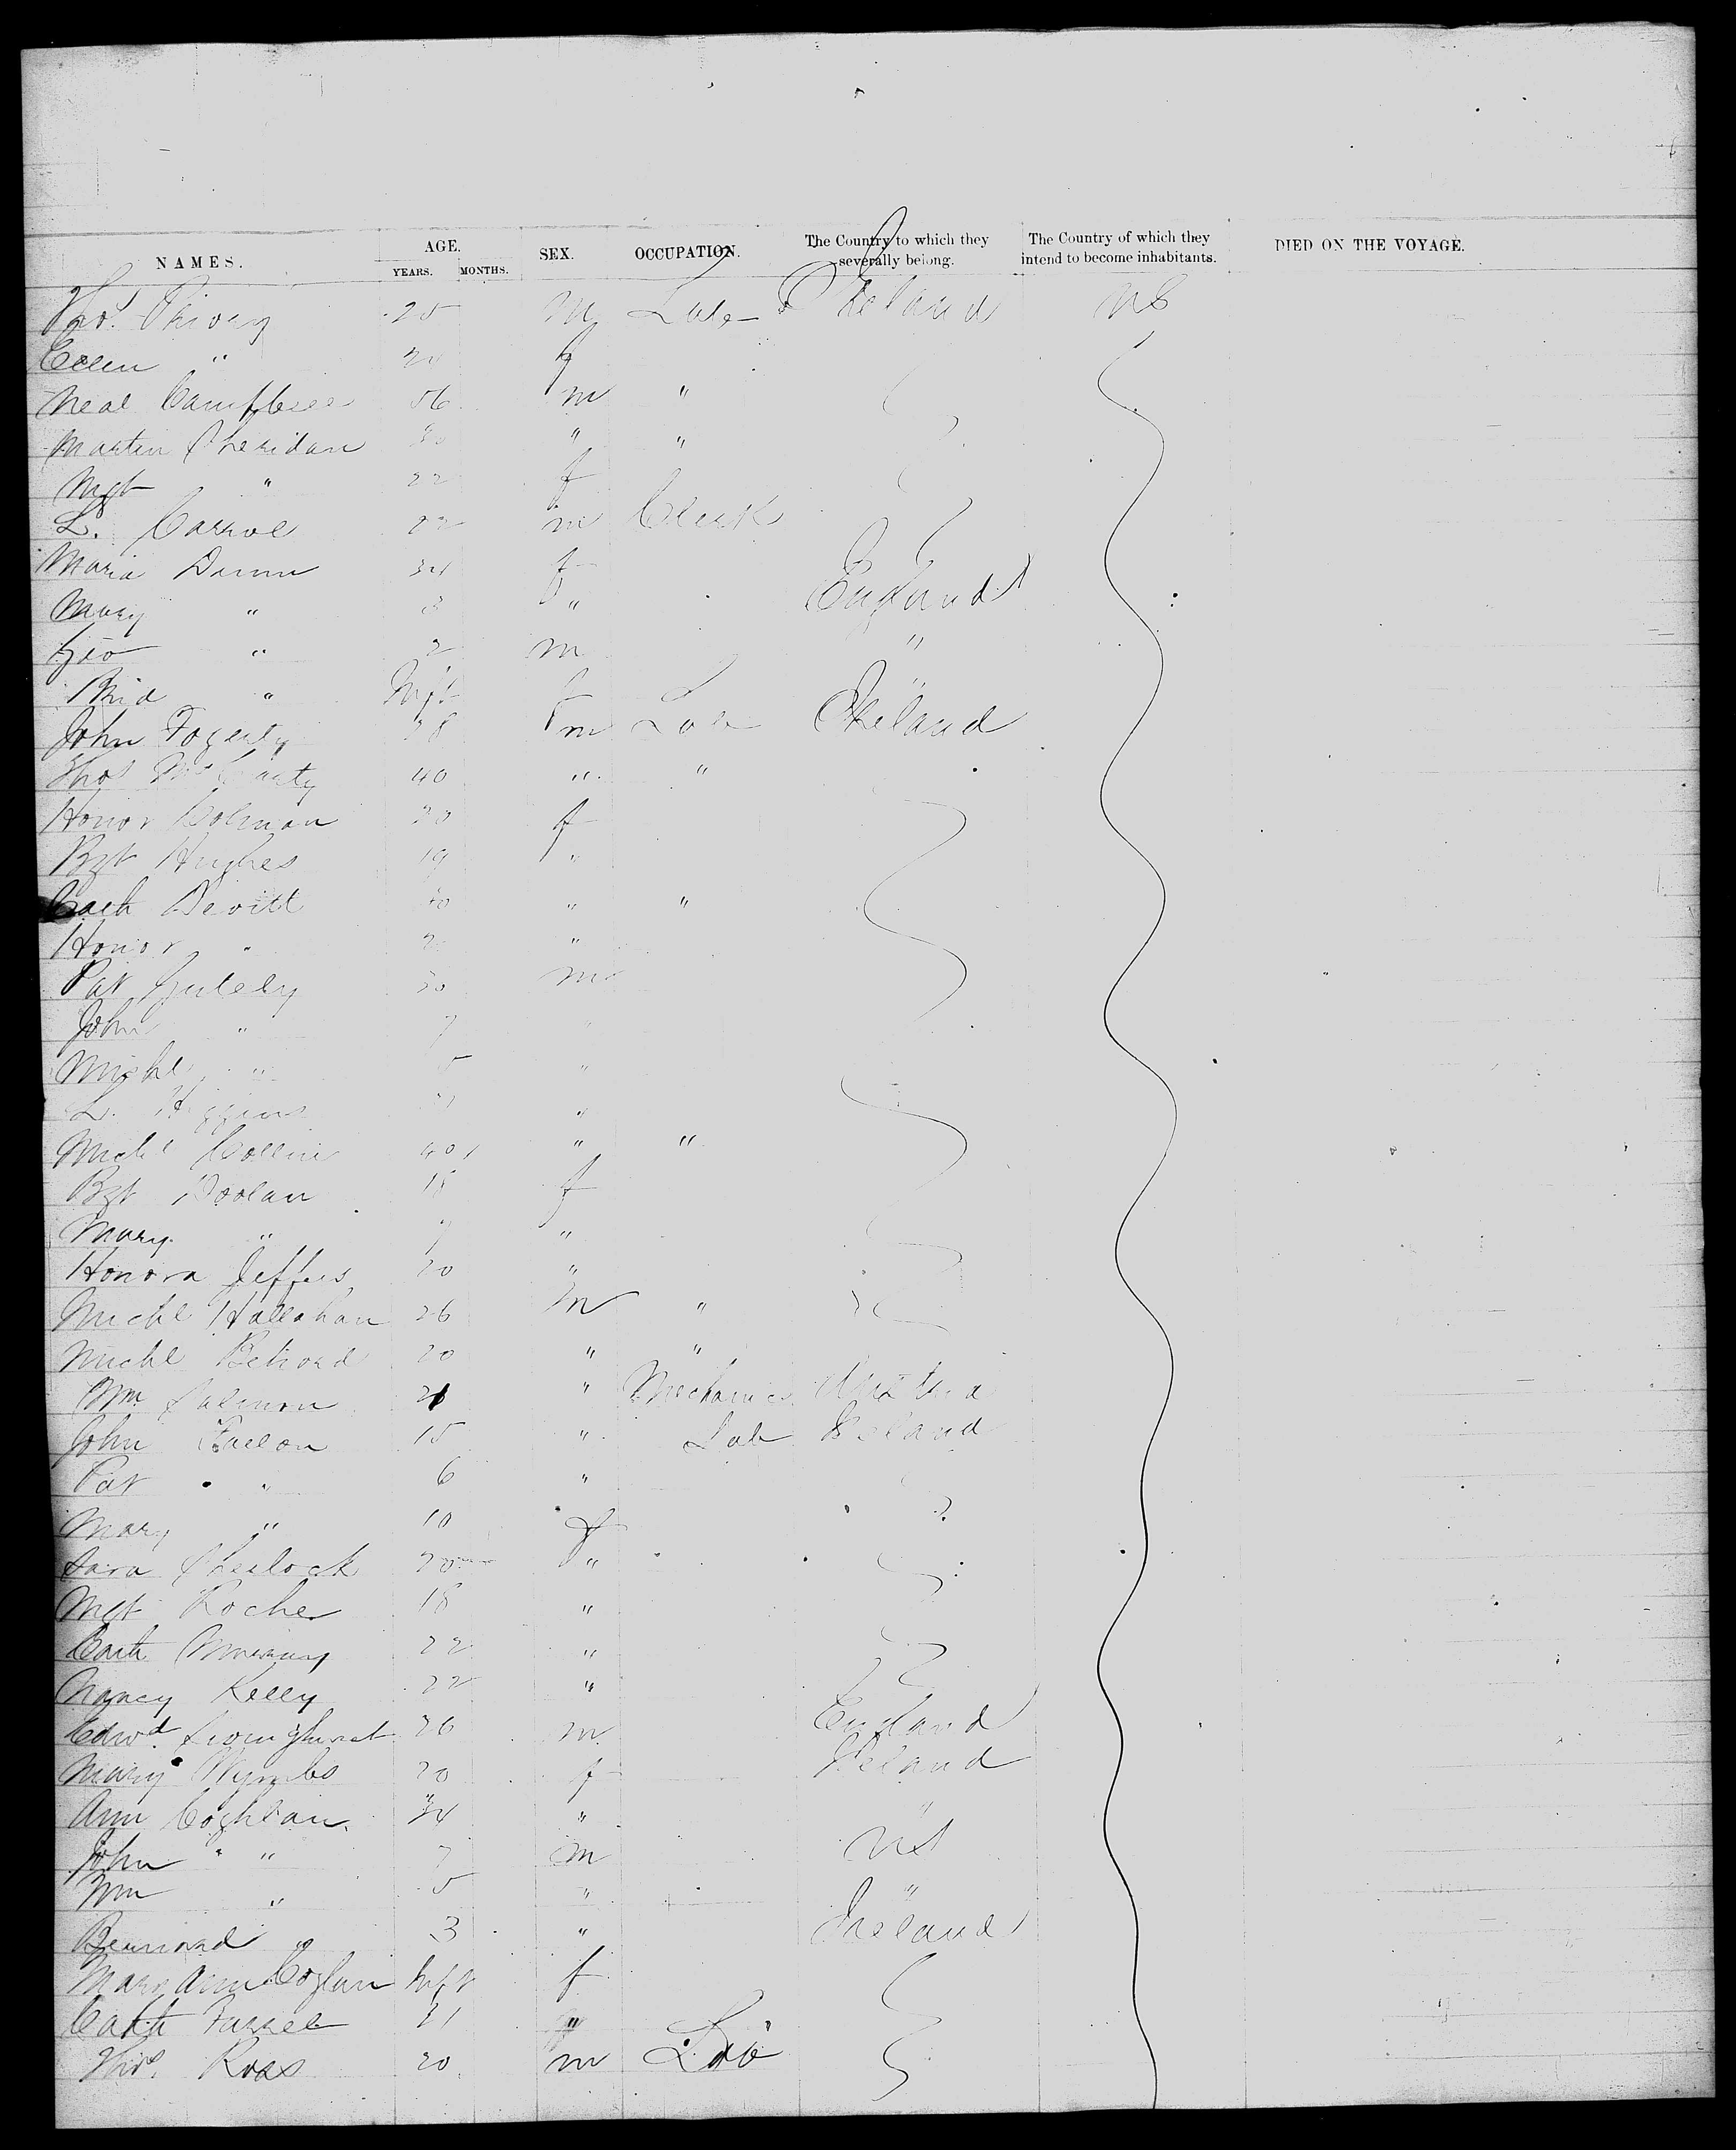 NAMES. AGE. YEARS. MONTHS. SEX. OCCUPATION. The Country to which they severally belong. The Country of which they intend to become inhabitants. DIED ON THE VOYAGE.
Thos. 25 m Lab Ireland US
Ellen " 24 f
Neal Campbell 56 m "
Martin Sheridan 30 " "
Mgt " 22 f
Carrol 22 m Clerk
Maria Dunn 34 f
Mary " 3 " England
Geo " 2 m "
Brid " Inft f "
John Fogerty 38 m Lab Ireland
Thos McCarty 40 " "
Honor Colman 20 f
Bgt Hughes 19 "
Cath Devitt 40 " "
Honor " 2 "
Pat 30 m
John " 7 "
Michl " 5 "
L. Higgins "
Michl Collins 40 " "
Bgt Doolan 18 f
Mary " 7 "
Honora Jeffers 20 "
Michl Hallahan 26 m "
Michl 20 " "
Wm Salmon " Mechanics
John Fallon 15 " Lab Ireland
Pat " 6 "
Mary " 10 f
Sara Sherlock 20 "
Mgt Roche 18 "
Cath 22 "
Nancy Kelly 22 "
Edwd. 26 m England
Mary 20 f Ireland
Ann Coghlan 34 " "
John " 7 m US
Wm " 5 " "
Bernard " 3 " Ireland
Mary Ann Coglan Inft f
Cath Farrel 21 "
Thos. Ross 20 m Lab